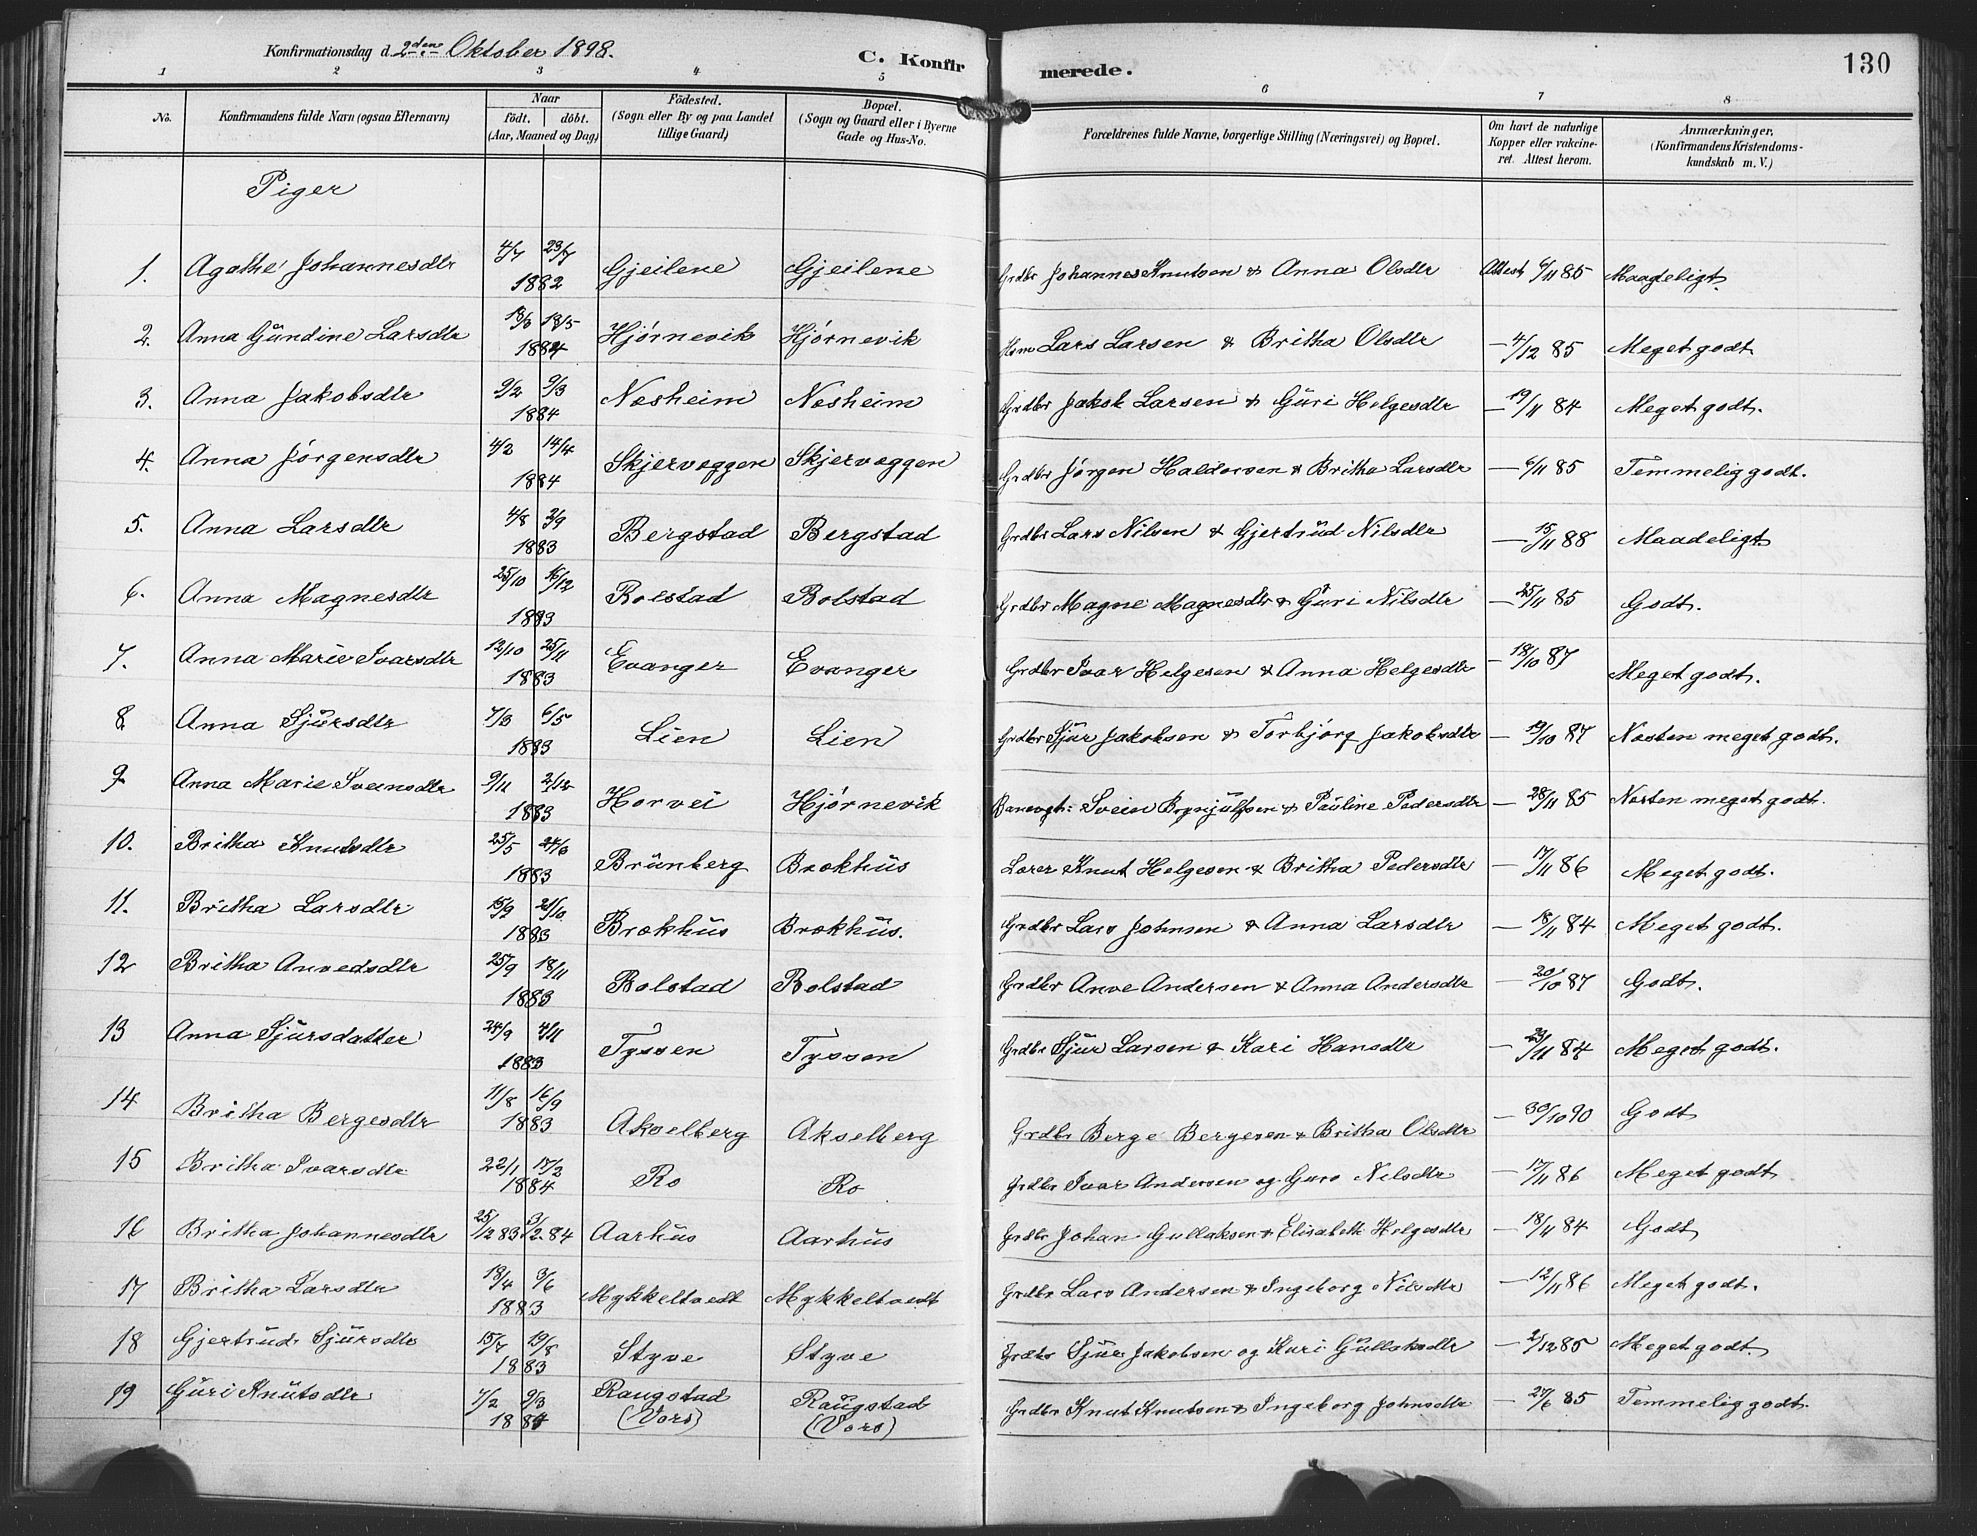 Konfirmationsdag d. 2den Oktober 1898.
C. Konfirmerede.
130
1 2 3 4 5 6 7 8
No. | Konfirmandens fulde Navn (ogsaa Efternavn) | Naar födt. döbt. (Aar, Maaned og Dag) | Födested. (Sogn eller By og paa Landet tillige Gaard) | Bopæl. (Sogn og Gaard eller i Byerne Gade og Hus-No. | Forældrenes fulde Navne, borgerlige Stilling (Næringsvei) og Bopæl. | Om havt de naturlige Kopper eller vakcineret. Attest herom. | Anmærkninger. (Konfirmandens Kristendomskundskab m. V.)
Piger
1. Agathe Johannesdtr 4/7 23/7 1882 Gjeilene Gjeilene Grdbr Johannes Knutsen & Anna Olsdtr Attest 6/11 85 Maadeligt.
2. Anna Gundine Larsdtr 13/3 18/5 1884 Hjørnevik Hjørnevik Hsm Lars Larsen & Britha Olsdtr — 4/12 85 Meget godt
3. Anna Jakobsdtr 9/2 9/3 1884 Nesheim Nesheim Grdbr Jakob Larsen & Guri Helgesdtr — 19/11 84 Meget godt.
4. Anna Jørgensdtr 4/2 14/4 1884 Skjerveggen Skjerveggen Grdbr Jørgen Haldorsen & Britha Larsdtr — 6/11 85 Temmelig godt.
5. Anna Larsdtr 4/8 2/9 1883 Bergstad Bergstad Grdbr Lars Nilsen & Gjertrud Nilsdtr — 15/11 88 Maadeligt
6. Anna Magnesdtr 25/10 16/12 1883 Bolstad Bolstad Grdbr Magne Magnesdtr & Guri Nilsdtr — 25/11 85 Godt.
7. Anna Marie Ivarsdtr 12/10 25/11 1883 Evanger Evanger Grdbr Ivar Helgesen & Anna Helgesdtr — 18/10 87 Meget godt.
8. Anna Sjursdtr 7/3 6/5 1883 Lien Lien Grdbr Sjur Jakobsen & Torbjørg Jakobsdtr — 19/10 87 Næsten meget godt.
9 Anna Marie Sveinsdtr 9/11 2/12 1883 Horvei Hjørnevik Banevgt: Svein Brynjulfsen & Pauline Pedersdtr — 28/11 85 Næsten meget godt.
10. Britha Knutsdtr 25/5 24/6 1883 Brunberg Brekhus Lærer Knut Helgesen & Britha Pedersdtr — 17/11 86 Meget godt.
11. Britha Larsdtr 15/9 21/10 1883 Brekhus Brekhus. Grdbr Lars Johnsen & Anna Larsdtr — 18/11 84 Meget godt.
12 Britha Anvedsdtr 25/9 18/11 1883 Bolstad Bolstad Grdbr Anve Andersen & Anna Andersdtr — 20/10 87 Godt.
13 Anna Sjursdatter 24/9 4/11 1883 Tyssen Tyssen Grdbr Sjur Larsen & Kari Hansdtr — 29/11 84 Meget godt.
14 Britha Bergesdtr 11/8 16/9 1883 Akselberg Akselberg Grdbr Berge Bergesen & Britha Olsdtr — 30/10 90 Godt
15 Britha Ivarsdtr 22/1 17/2 1884 Ro Ro Grdbr Ivar Andersen og Guro Nilsdtr — 17/11 86 Meget godt
16 Britha Johannesdtr 25/12 83 3/2 84 Aarhus Aarhus Grdbr Johan Gullaksen & Elisabeth Helgesdtr — 18/11 84 Godt
17 Britha Larsdtr 13/4 3/6 1883 Mykkeltvedt Mykkeltvedt Grdbr Lars Andersen & Ingeborg Nilsdtr — 12/11 86 Meget godt.
18 Gjertrud Sjursdtr 15/7 19/8 1883 Styve Styve Grdbr Sjur Jakobsen og Kari Gullaksdtr — 2/12 85 Meget godt.
19 Guri Knutsdtr 7/2 9/3 1884 Raugstad (Vors) Raugstad (Vors) Grdbr Knut Knutsen & Ingeborg Johnsdtr — 27/6 85 Temmelig godt.